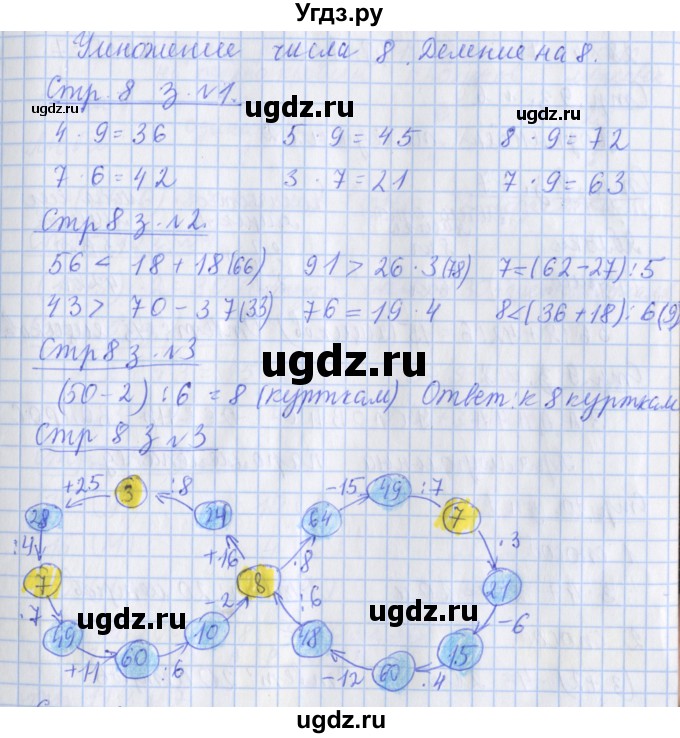 Угдз.ру
Умножение числа 8. Деление на 8.
Стр. 8 з. №1.
ugdz.ru ugdz.ru ugdz.ru
4 · 9 = 36 5 · 9 = 45 8 · 9 = 72
7 · 6 = 42 3 · 7 = 21 7 · 9 = 63
Стр 8 з. №2.
ugdz.ru ugdz.ru
56 < 18 + 18 (66) 91 > 26 · 3 (78) 7 = (62 - 27) : 5
43 > 70 - 37 (33) 76 = 19 · 4 8 < (36 + 18) : 6 (9)
Стр 8 з. №3
ugdz.ru ugdz.ru
(50 - 2) : 6 = 8 (курткам) Ответ: к 8 курткам
Стр 8 з №3
+25 3 :8 -15 49 :7
28 24 64 7
:4 +16 :8 :3
7 8 21
:7 -2 :6 -6
49 10 48 15
ugdz.ru ugdz.ru
+11 60 :6 -12 60 :4
ugdz.ru
ugdz.ru